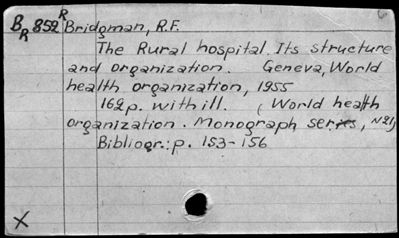 BR 852 R Bridgman, R.F.
The Rural hospital. Its structure
and organization. Geneva, World
health organization, 1955
162p. with ill. (World health
organization. Monograph series, N21)
Bibliogr.: p. 153-156
X